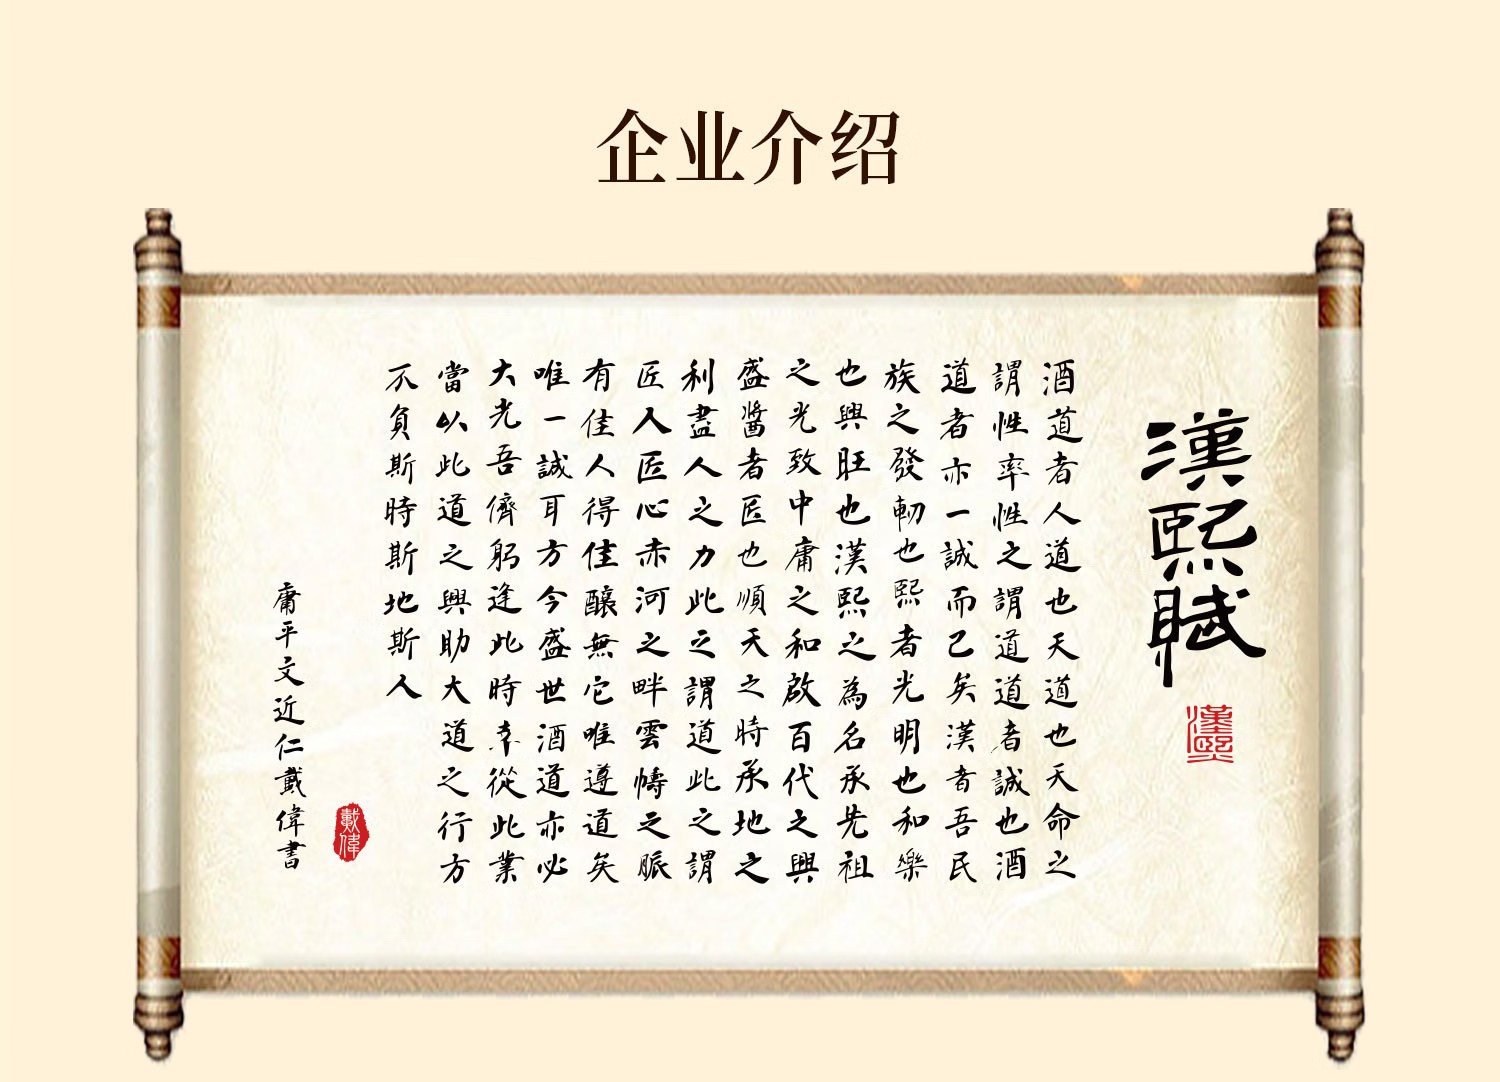 企业介绍
漢熙賦
漢熙
酒道者人道也天道也天命之
謂性率性之謂道道者誠也酒
道者亦一誠而已矣漢者吾民
族之發軔也熙者光明也和樂
也興旺也漢熙之為名承先祖
之光致中庸之和啟百代之興
盛醬者匠也順天之時承地之
利盡人之力此之謂道此之謂
匠人匠心赤河之畔雲幬之脈
有佳人得佳釀無它唯遵道矣
唯一誠耳方今盛世酒道亦必
大光吾儕躬逢此時幸從此業
當以此道之興助大道之行方
不負斯時斯地斯人
庸平文近仁戴偉書
戴偉